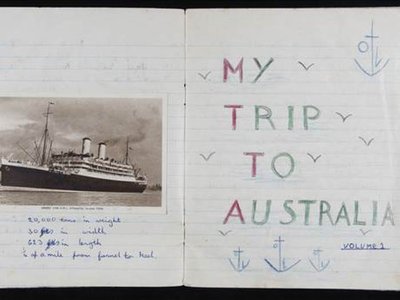 20,000 tons in weight
30 in width
in length
of a mile from funnel to keel.
MY
TRIP
TO
AUSTRALIA
VOLUME 1